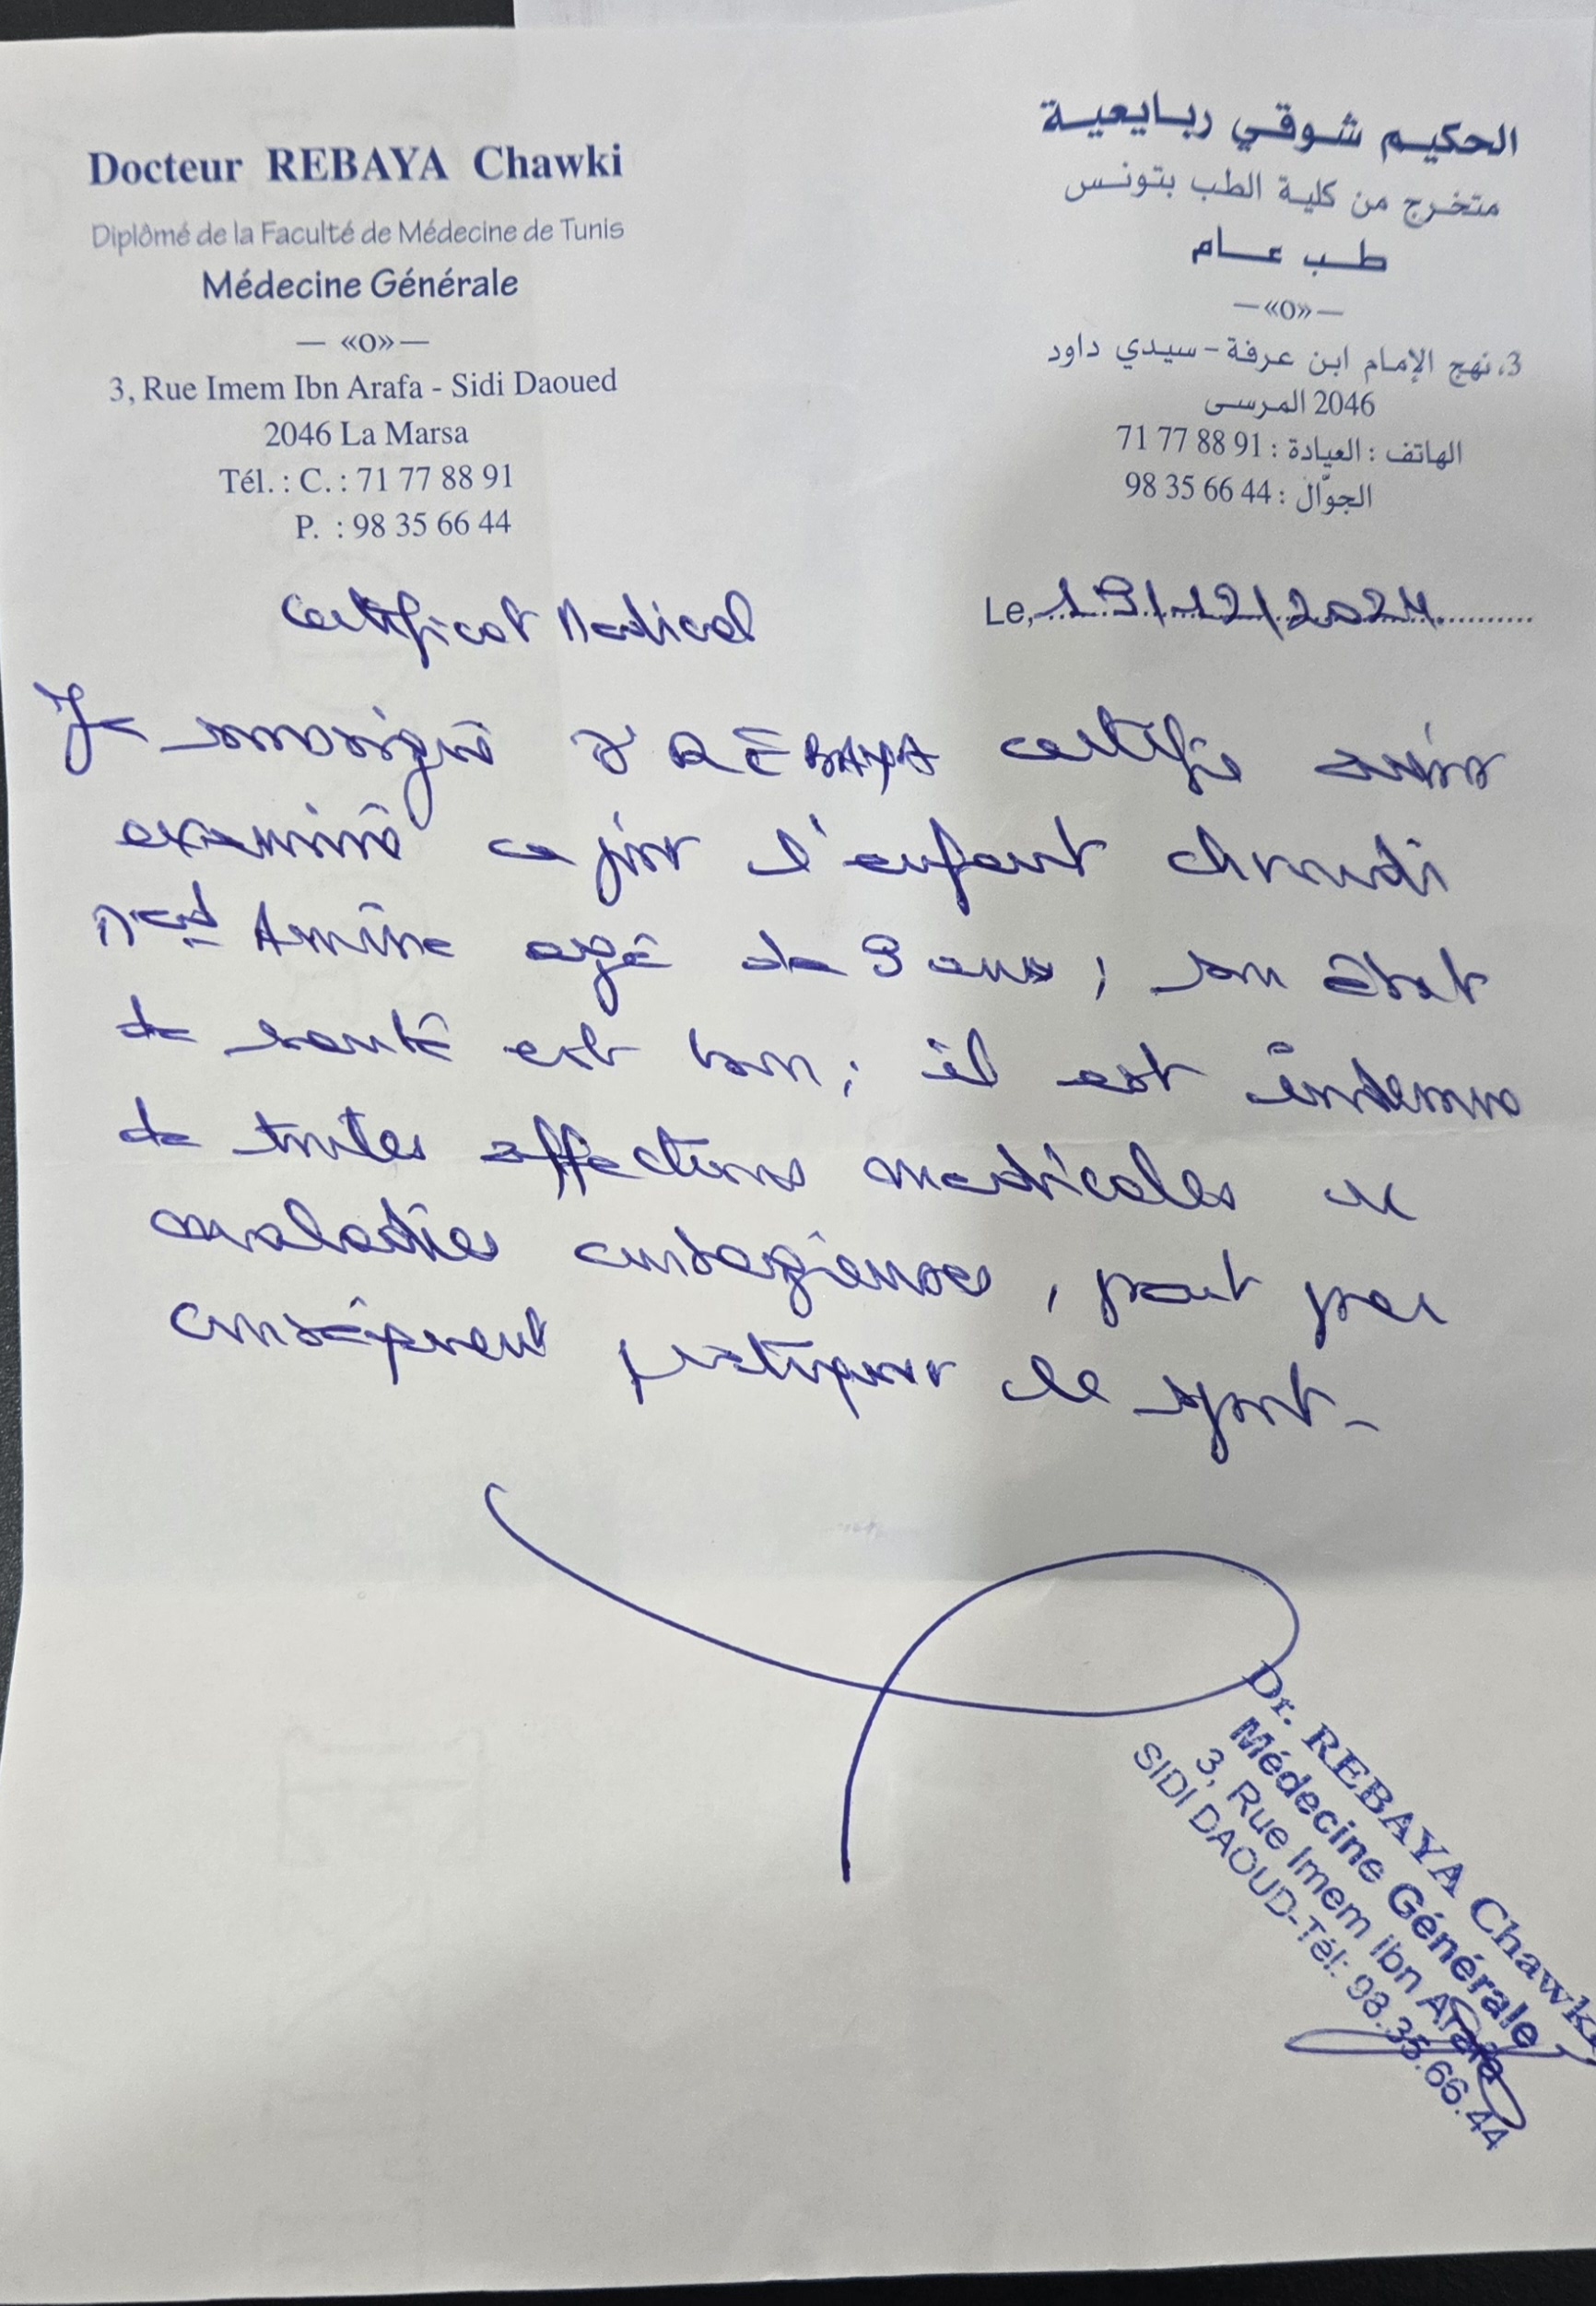 Docteur REBAYA Chawki
Diplômé de la Faculté de Médecine de Tunis
Médecine Générale
— «o» —
3, Rue Imem Ibn Arafa - Sidi Daoued
2046 La Marsa
Tél. : C. : 71 77 88 91
P. : 98 35 66 44
الحكيم شوقي ربايعية
متخرج من كلية الطب بتونس
طب عام
— «o» —
3، نهج الإمام ابن عرفة - سيدي داود
2046 المرسى
الهاتف : العيادة : 71 77 88 91
الجوّال : 98 35 66 44
Certificat Medical
Le, 19/12/2024
Je soussigné Dr REBAYA certifie avoir
examiné ce jour l'enfant
Med Amine agé de 9 ans ; son état
de santé est bon ; il est indemne
de toutes affections medicales
maladies contagieuses, peut par
conséquent pratiquer le sport -
Dr. REBAYA Chawki
Médecine Générale
3, Rue Imem Ibn Arafa
SIDI DAOUD-Tél: 98.35.66.44